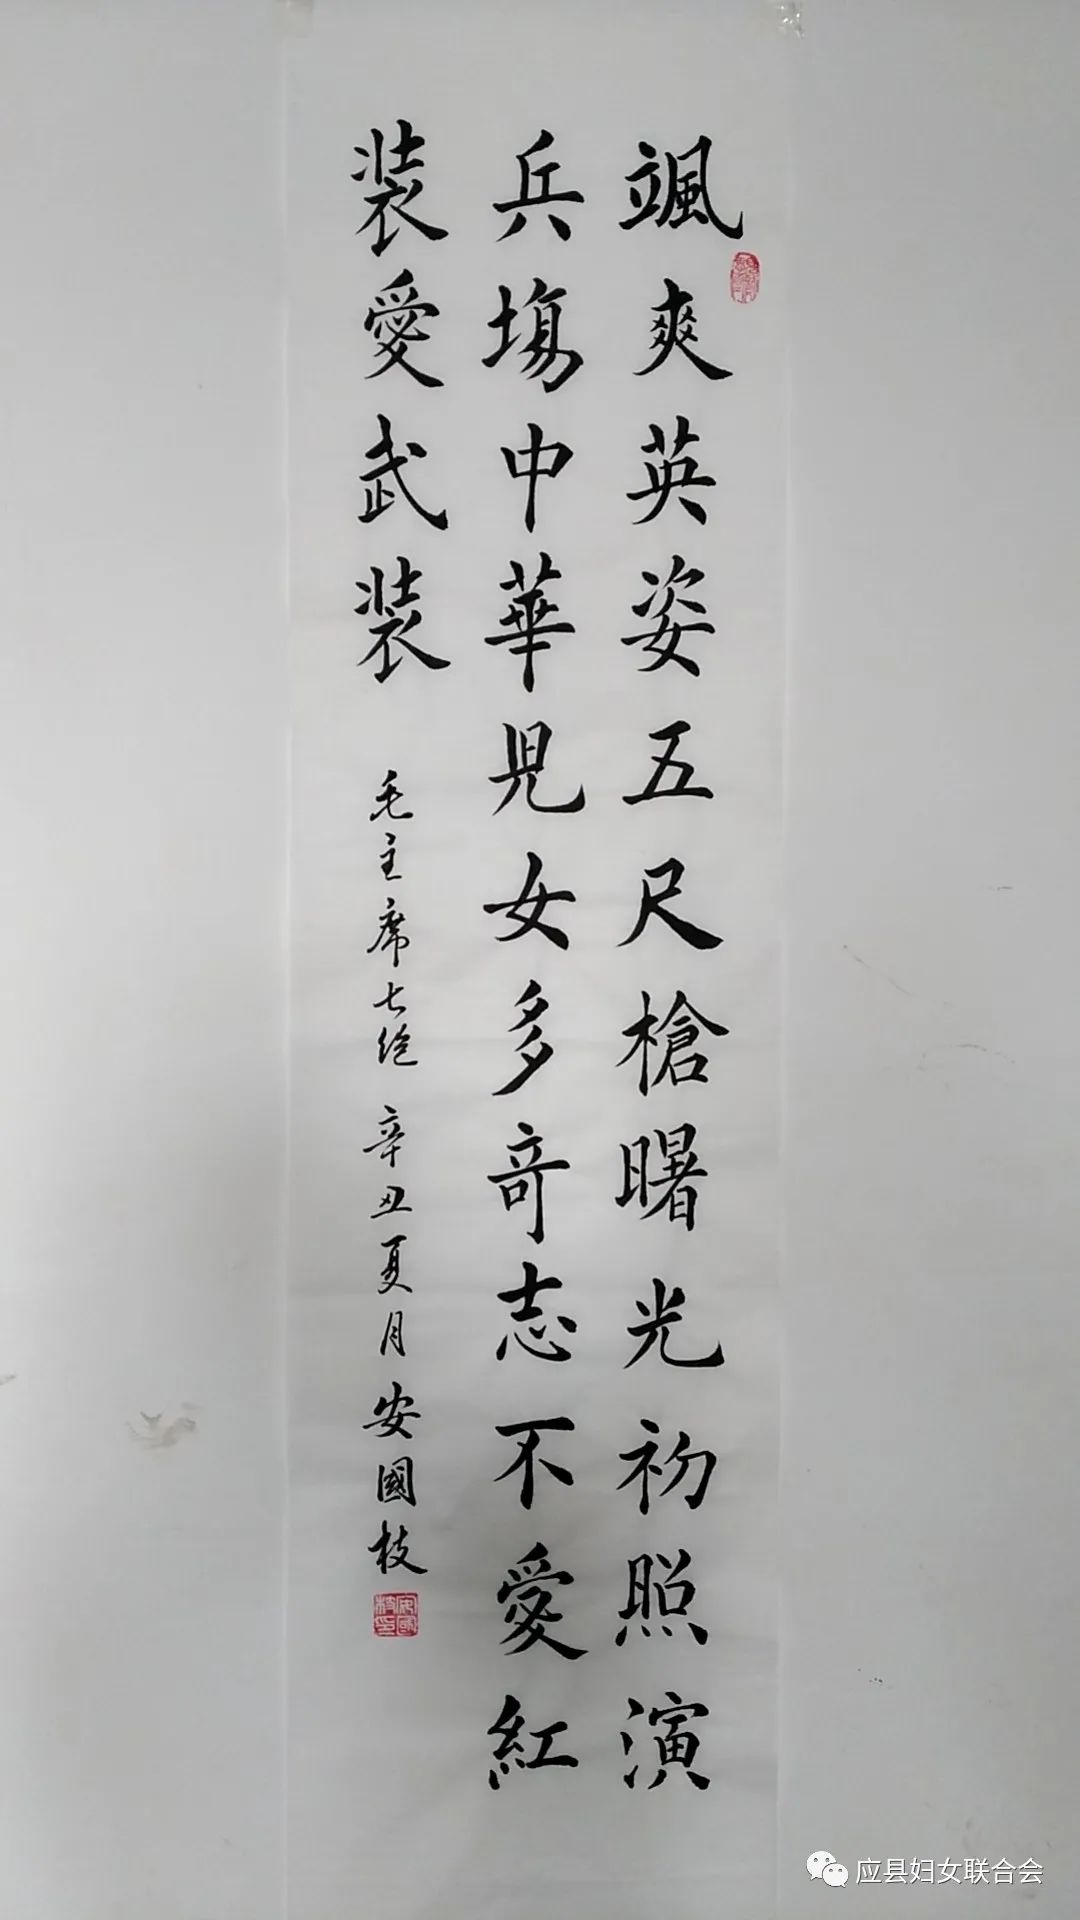 颯爽英姿五尺槍曙光初照演
兵塲中華児女多奇志不愛紅
装愛武装
毛主席七绝 辛丑夏月 安國枝
安國枝印
应县妇女联合会